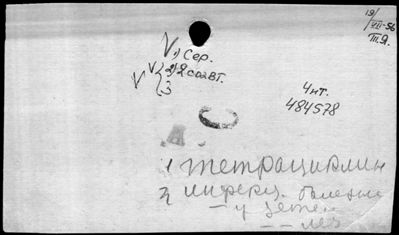 19/VII-56
III.Я.
V 1) Сер.
V V 2) 2 соавт.
3
Чит.
484578
А.
1 тетрациклин
2 инфекц. болезни
— у детей
— — леч